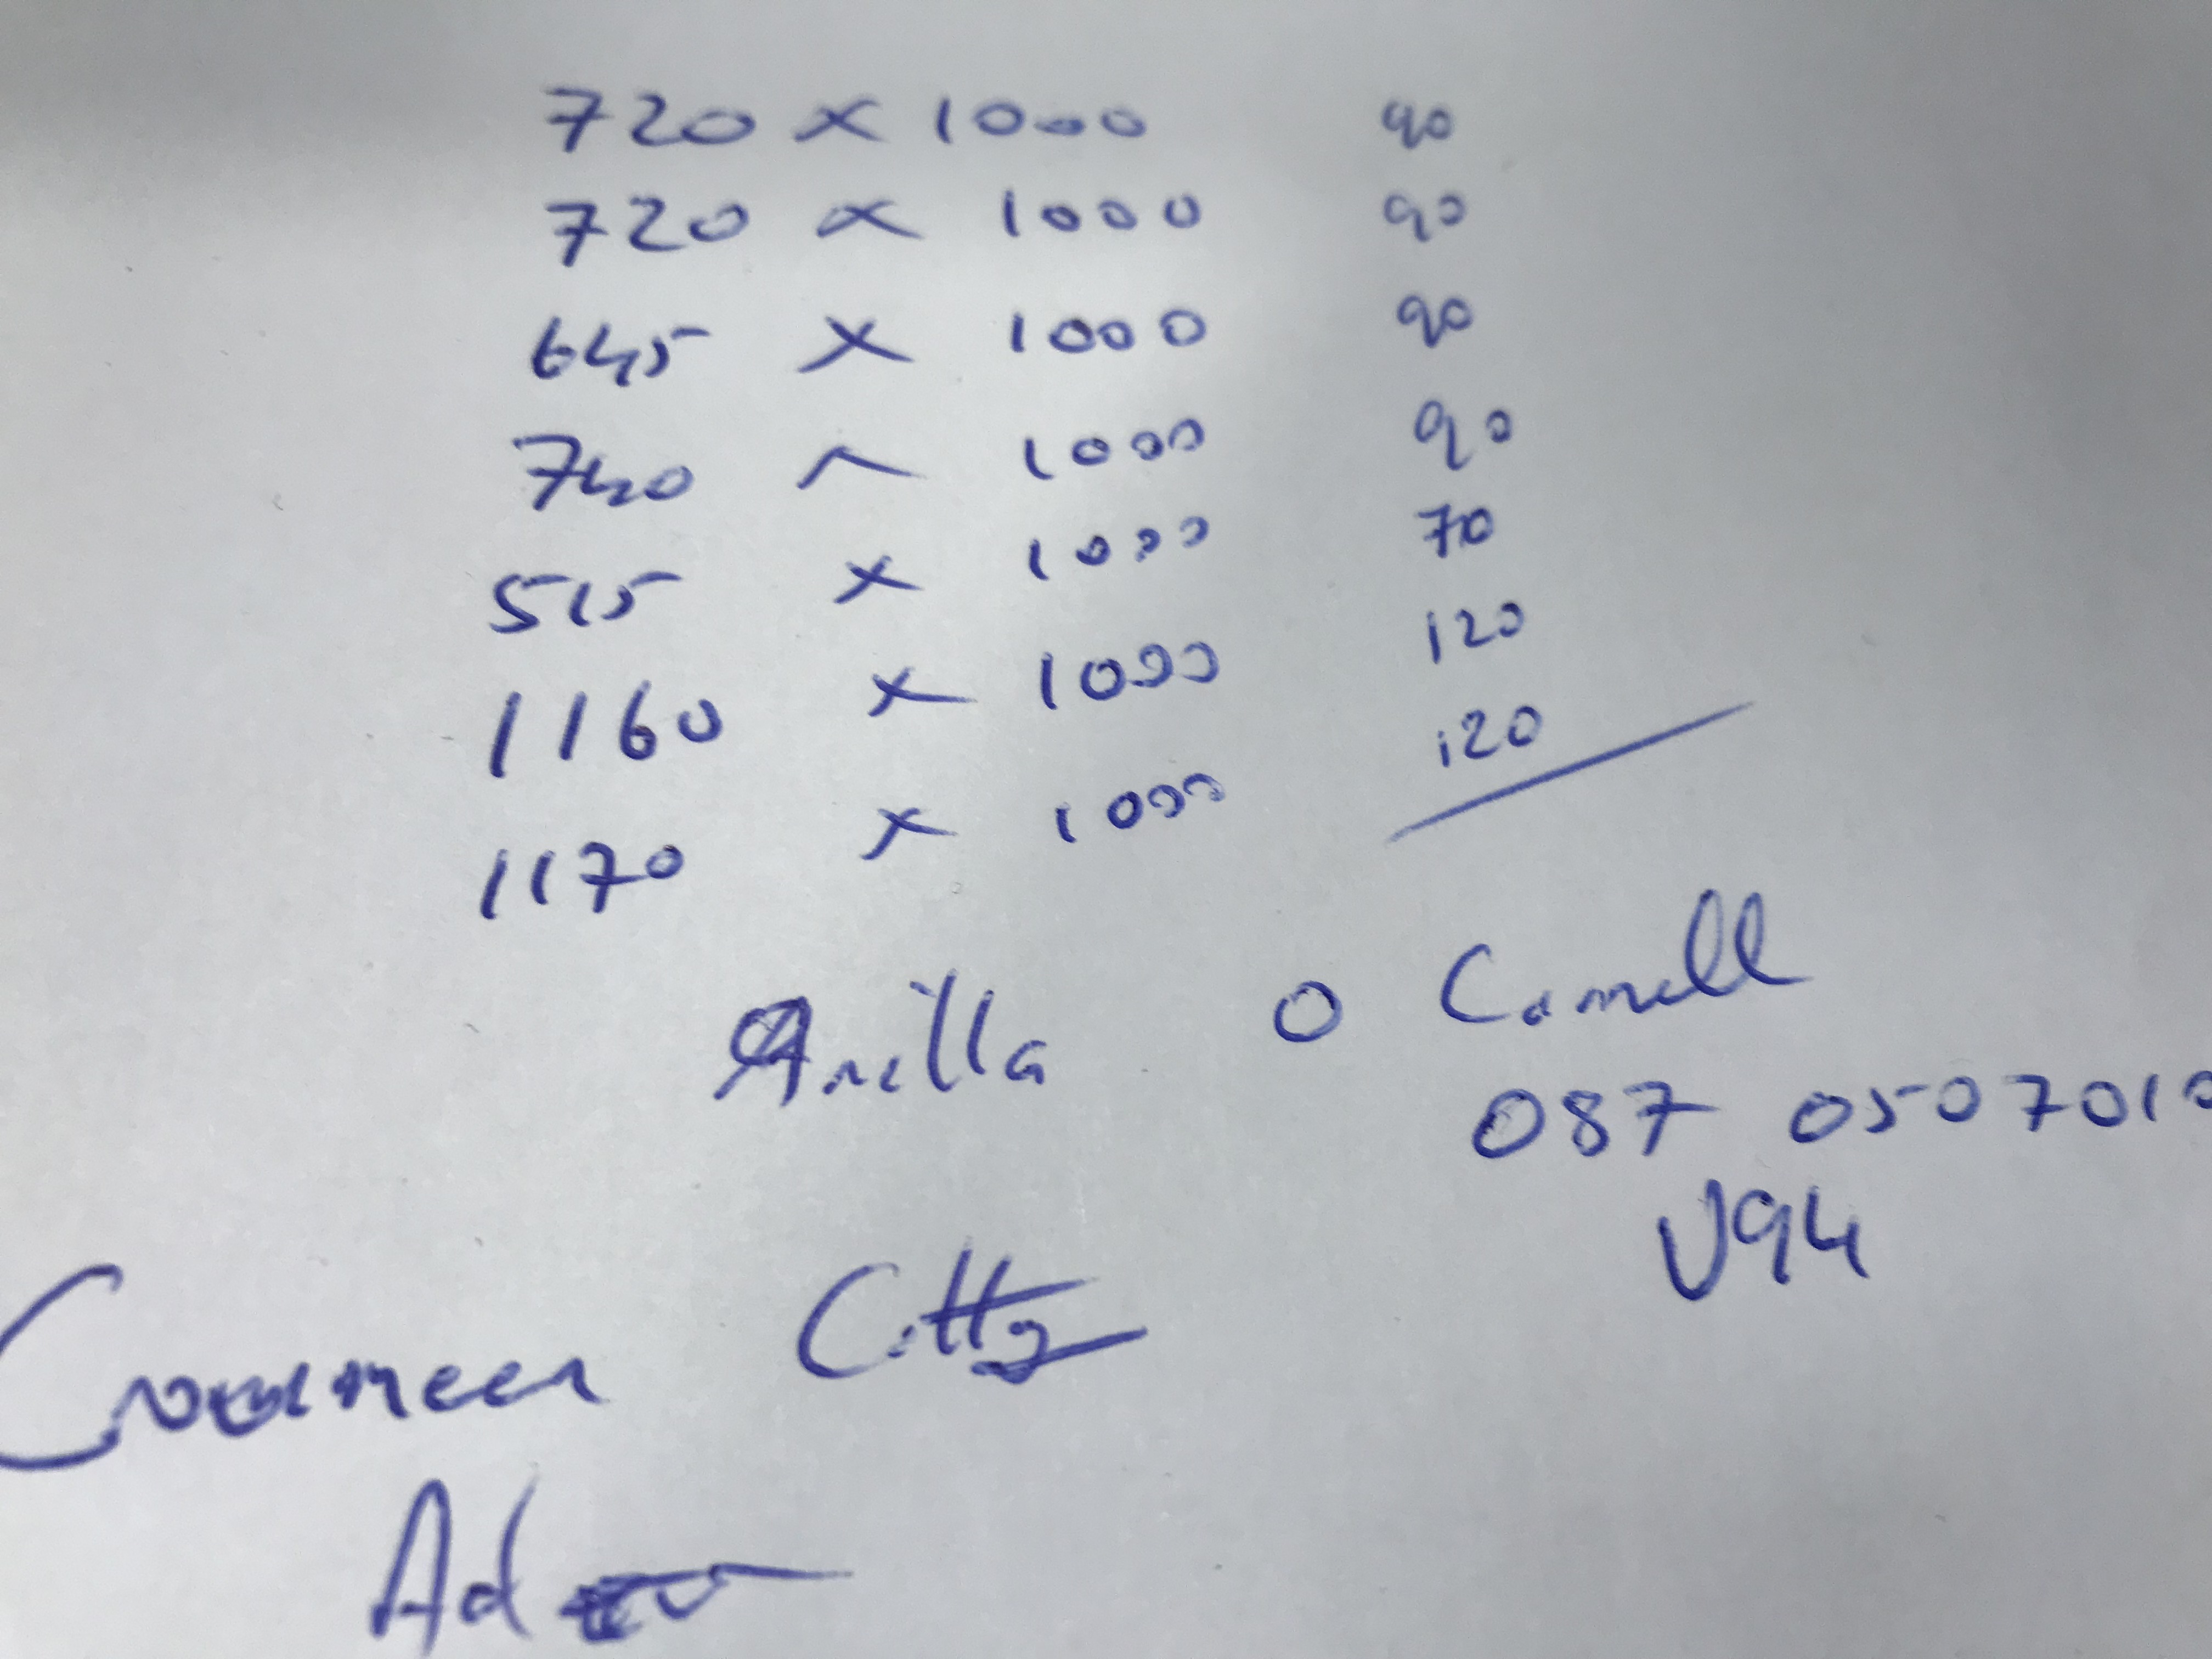 720 x 1000 90
720 x 1000 90
645 x 1000 90
740 x 1000 90
515 x 1000 70
1160 x 1000 120
1170 x 1000 120
O
087 0507010
V94